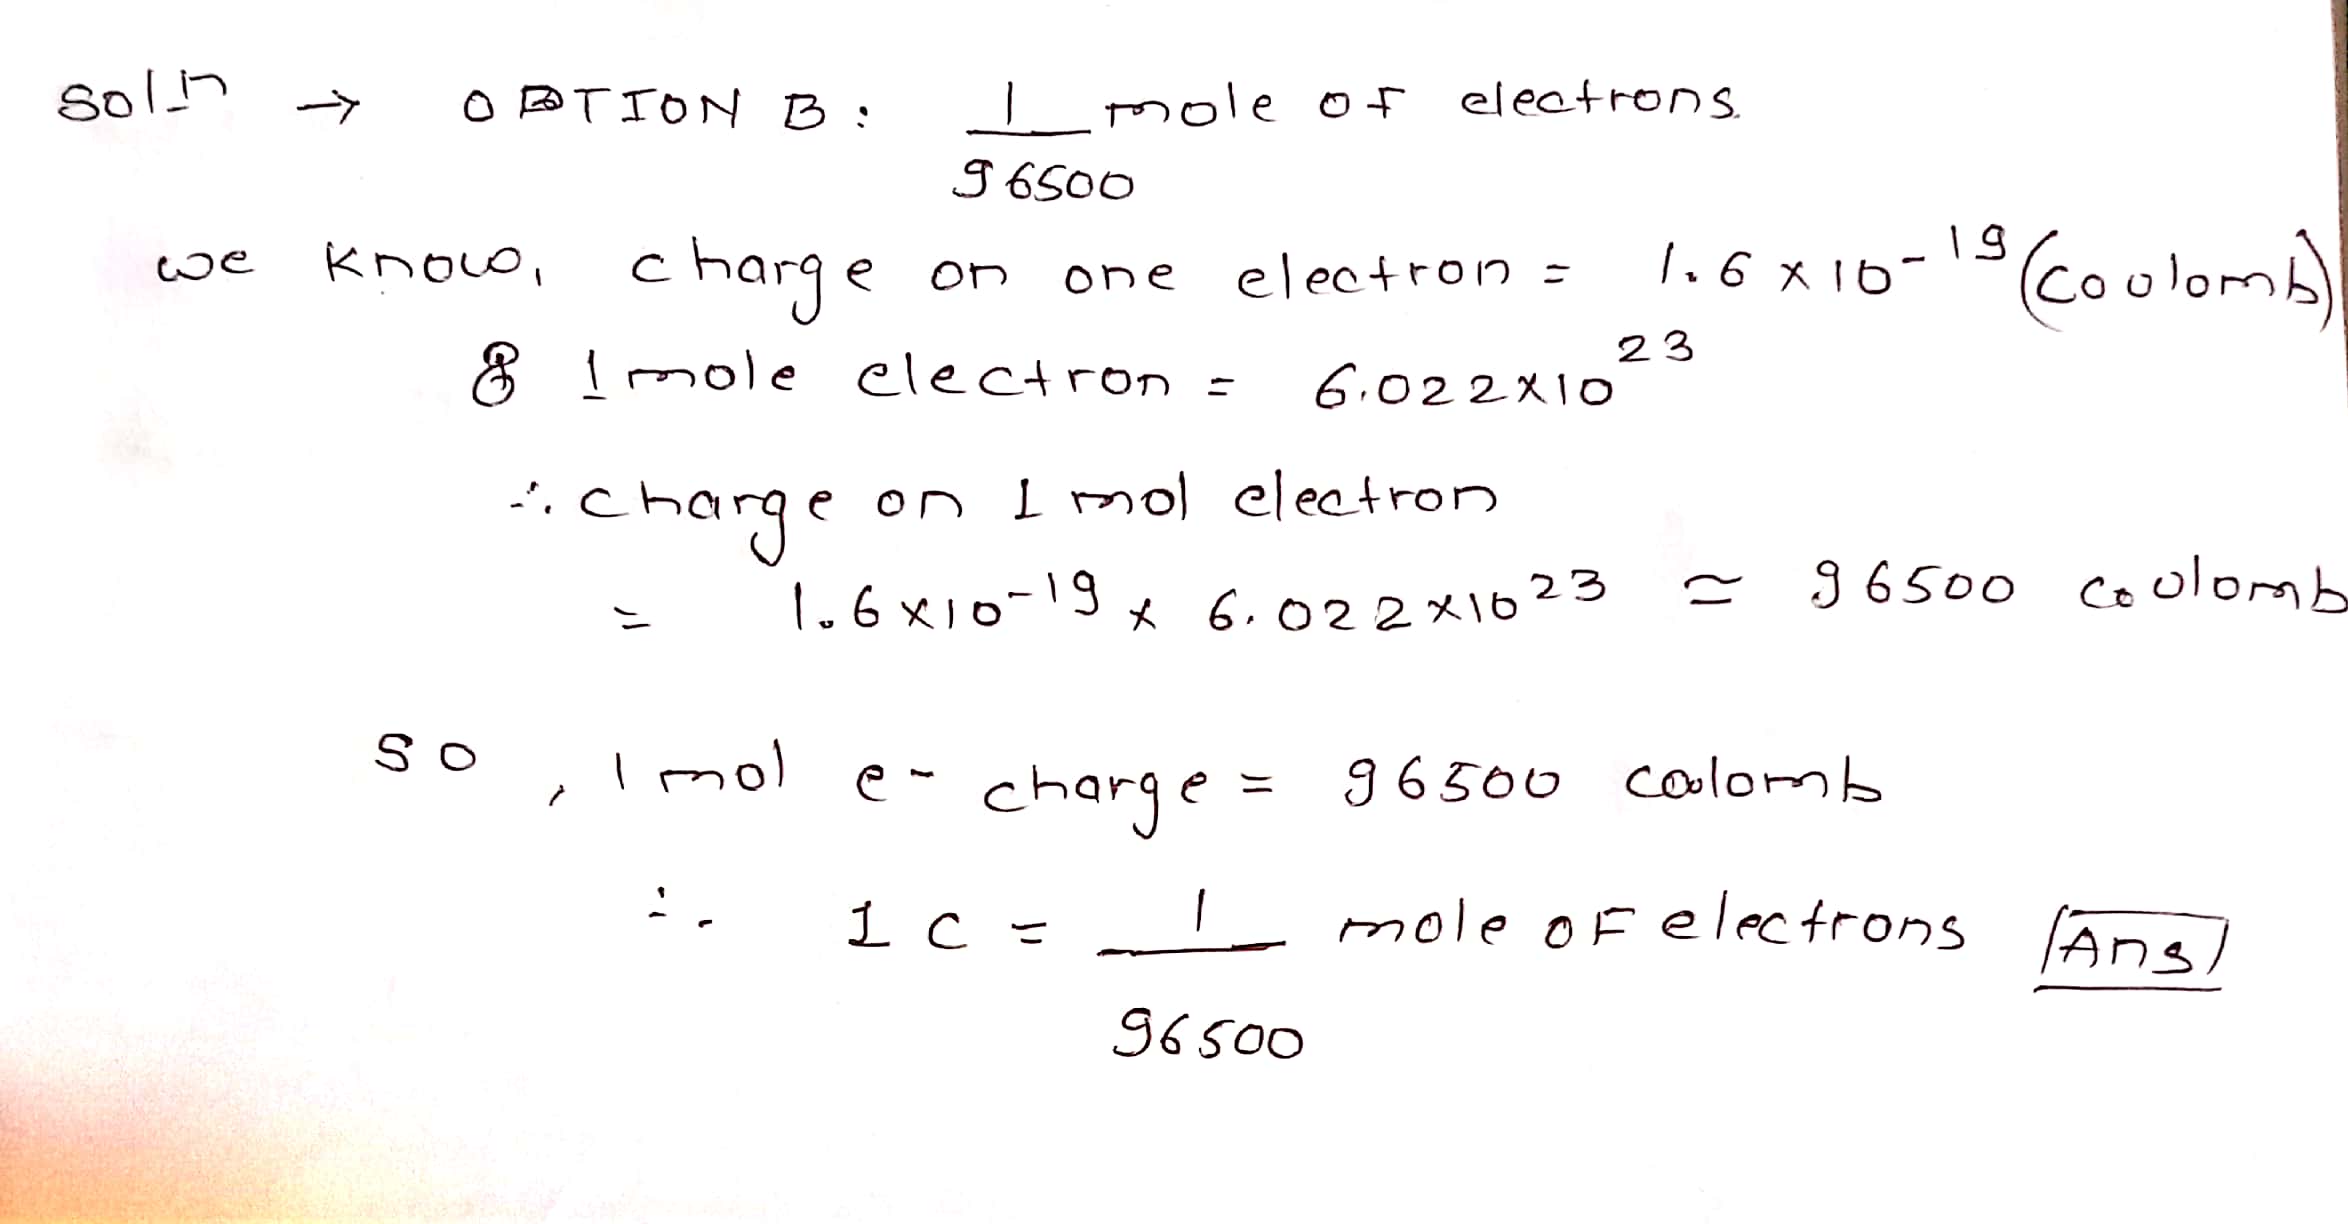 Soln → OPTION B: 1/96500 mole of electrons.
we know, charge on one electron = 1.6 x 10-19 (coulomb)
& 1 mole electron = 6.022x10 23
∴ charge on 1 mol electron
= 1.6x10-19 x 6.022x10 23 ≃ 96500 coulomb
so, 1 mol e- charge = 96500 coulomb
∴ 1 C = 1/96500 mole of electrons Ans